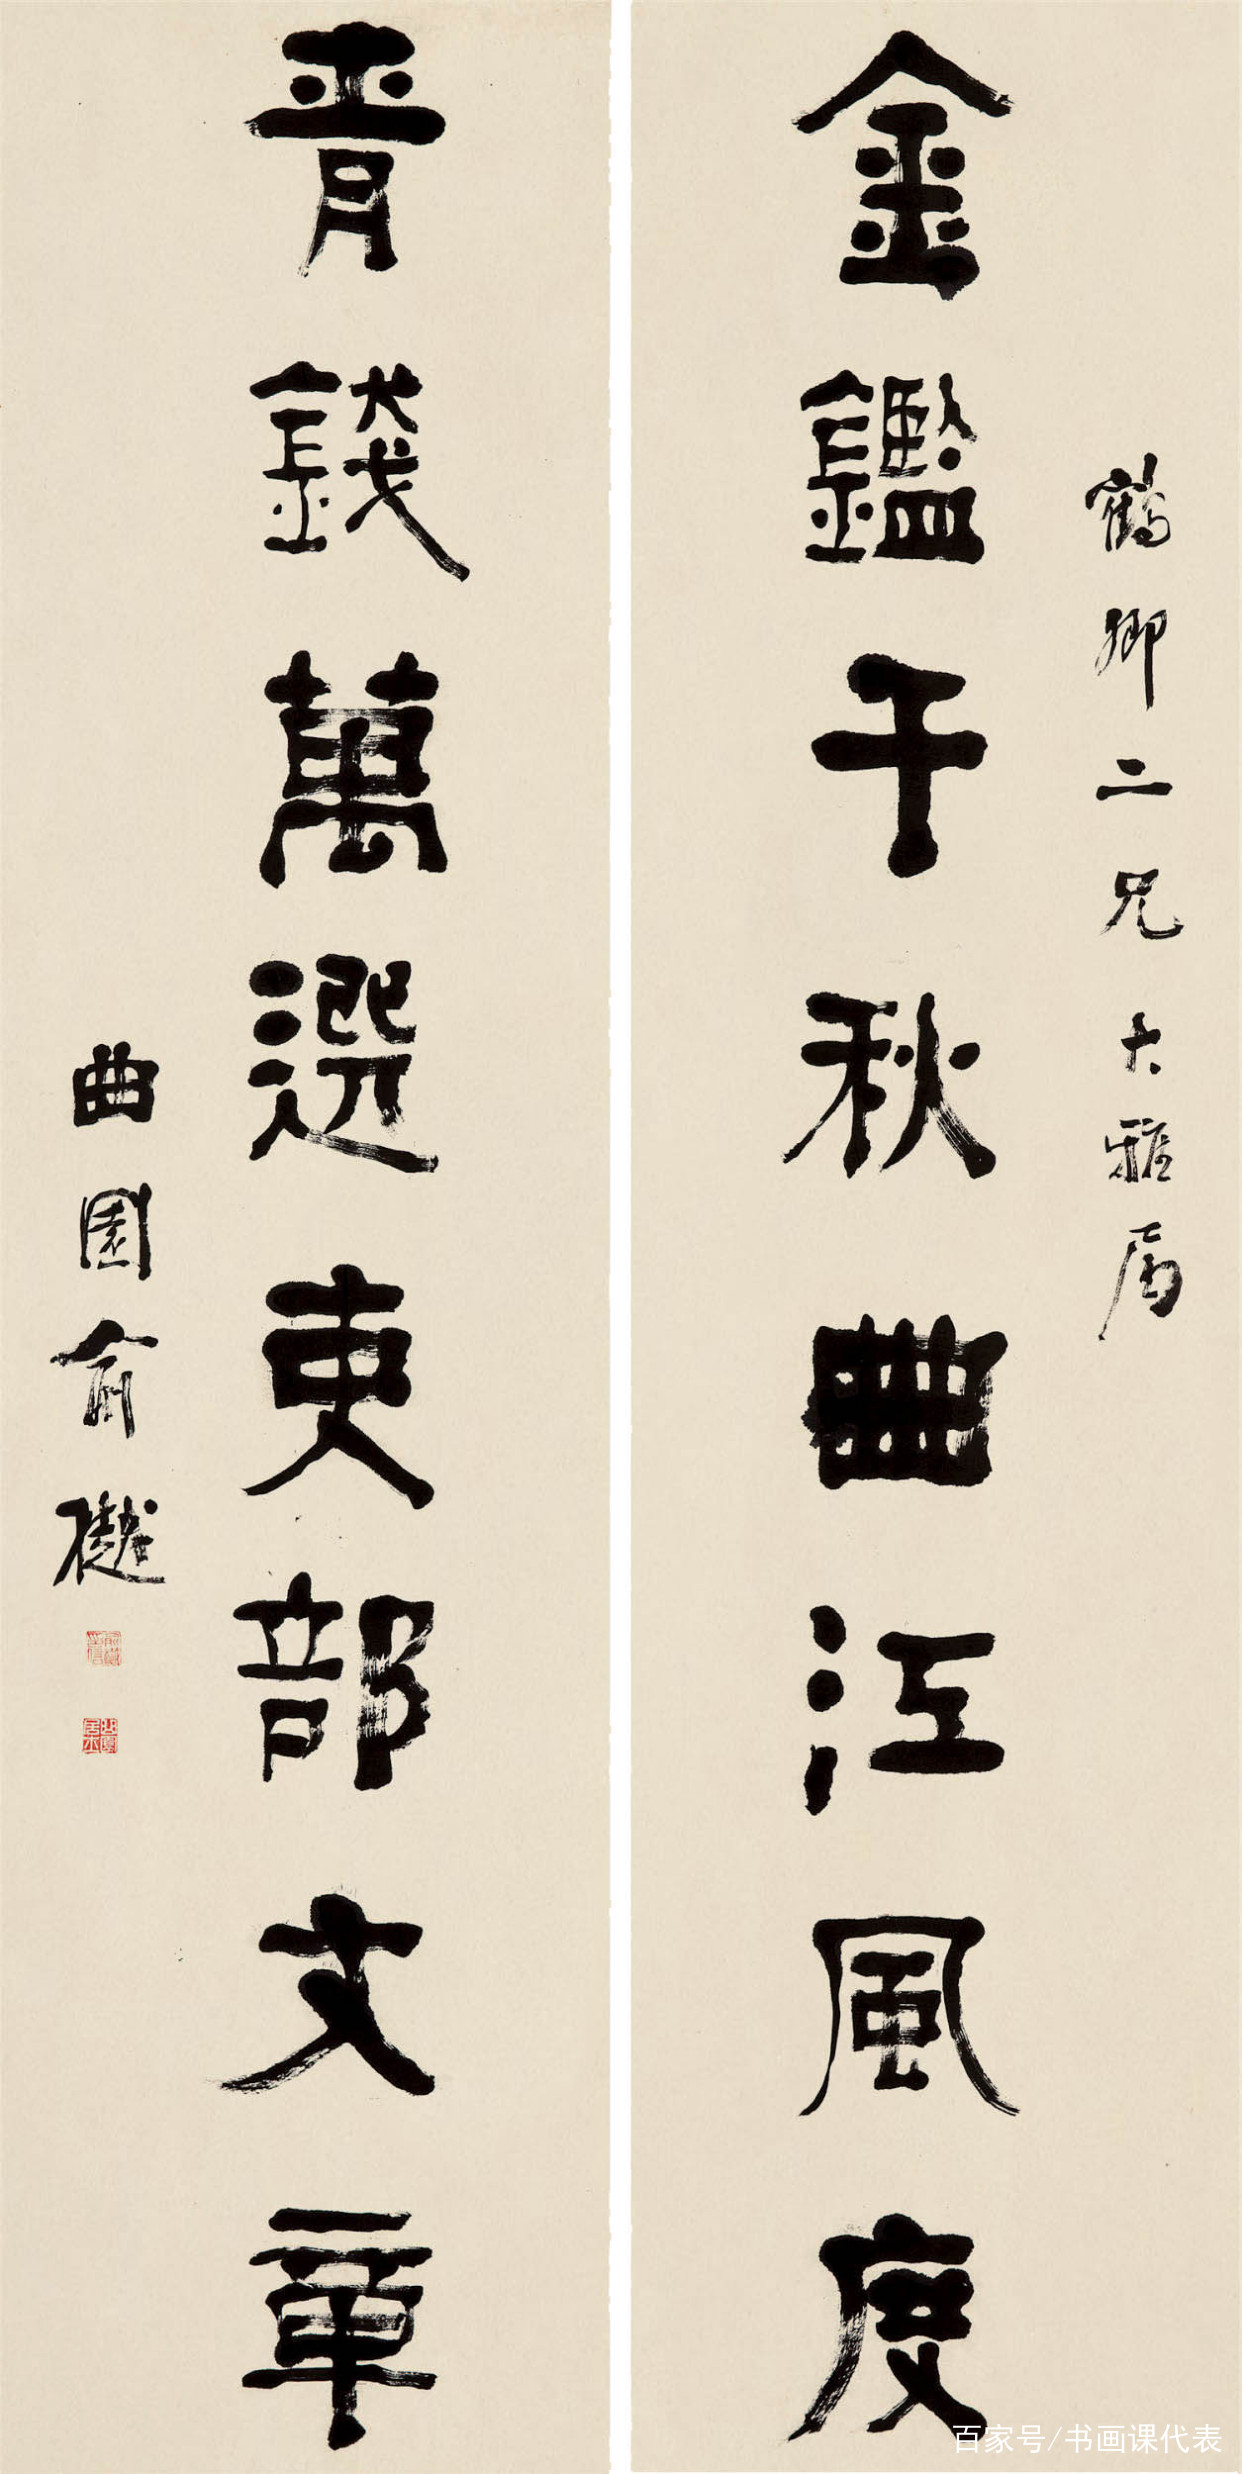 鶴卿二兄大雅属
金鑑千秋曲江風度
青錢萬選吏部文章
曲園俞樾
百家号/书画课代表